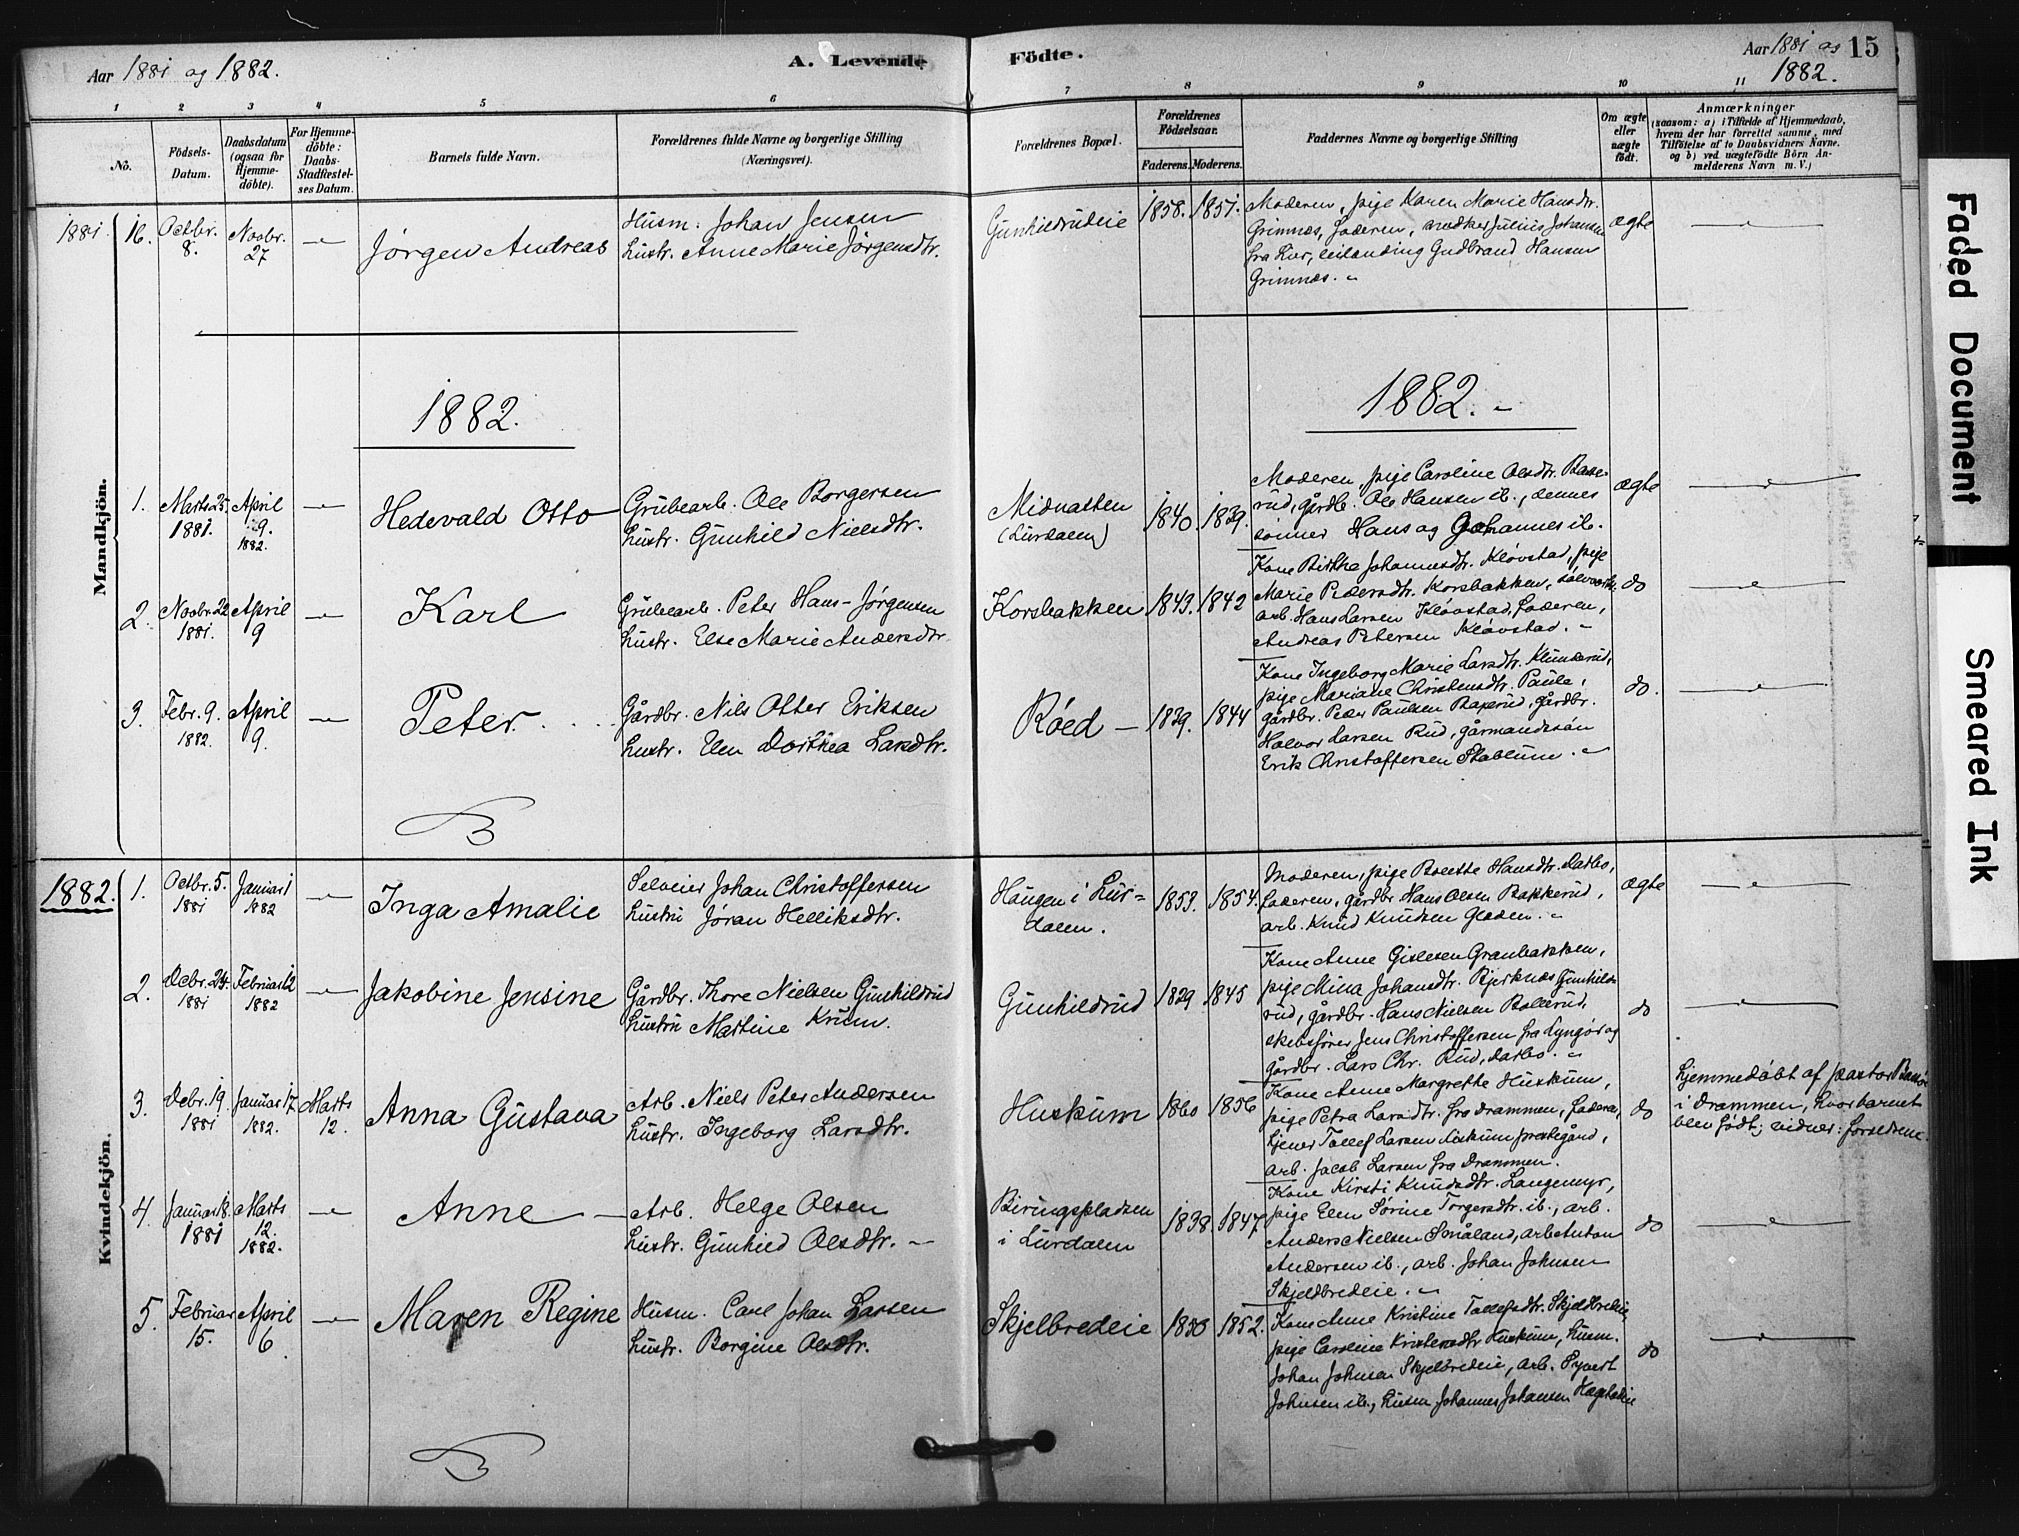 Aar 1881 og 1882.
A. Levende
Födte.
Aar 1881 og 1882.
15
1 2 3 4 5 6 7 8 9 10 11
No.
Födsels-Datum.
Daabsdatum (ogsaa for Hjemme-döbte).
For Hjemme-döbte: Daabs-Stadfæstel-ses Datum.
Barnets fulde Navn.
Forældrenes fulde Navne og borgerlige Stilling (Næringsvei).
Forældrenes Bopæl.
Forældrenes Födselsaar.
Faderens. Moderens.
Faddernes Navne og borgerlige Stilling
Om ægte eller uægte født.
Anmærkninger
(saasom: a) i Tilfælde af Hjemmedaab,
hvem der har forrettet samme, med
Tilföielse af to Daabsvidners Navne.
og b) ved uægtefödte Börn An-
melderens Navn m. V.)
Mandkjön.
1881. 16. Octbr. 8. Novbr. 27 Jørgen Andreas
Husm: Johan Jensen
hustr. Anne Marie Jørgensdtr.
Gunhildrudeie 1858. 1851.
Moderen, pige Karen Marie Hansdtr.
Grimnæs, faderen, Julius Johansen
fra Lier, Gudbrand Hansen
Grimnæs.
ægte
1882.
1882.
1. Marts 25. 1881. April 9. 1882. Hedevald Otto
Grubearb. Ole Borgersen
hustr. Gunhild Nielsdtr.
Midnatten (Lurdalen) 1840. 1839.
Moderen, pige Caroline Olsdtr. Bakke-
rud, gårdb. Ole Hansen ib., dennes
sönner Hans og Johannes ib.
ægte
2. Novbr. 22 1881. April 9 Karl
Grubearb. Peter Hans-Jørgensen
hustr. Else Marie Andersdtr.
Korsbakken 1843. 1842
Kone Birthe Johannesdtr. Kløvstad, pige
Marie Pedersdtr. Korsbakken, sølvverks
arb. Hans Larsen Kløvstad, faderen,
Andreas Petersen Kløvstad.
do
3. Febr. 9. 1882. April 9. Peter.
Gårdbr. Nils Otter Eriksen
hustr. Elen Dorthea Larsdtr.
Røed 1839. 1844
Kone Ingeborg Marie Larsdtr. Klunderud,
pige Mariane Christensdtr. Paule,
gårdbr. Peder Paulsen Baxerud, gårdbr.
Halvor Larsen Rud, gårmandssön
Erik Christoffersen Stablum.
do.
Kvindekjön.
1882. 1. Octbr. 5. 1881 Januar 1 1882 Inga Amalie
Selveier Johan Christoffersen
hustru Jøran Helliksdtr.
Haugen i Lur-
dalen. 1853. 1854.
Moderen, pige Boletta Hansdtr. Darbo,
faderen, gårdbr Hans Olsen Bakkerud,
arb. Knud Knudsen
ægte
2. Decbr. 24. 1881 Februar 12 1882 Jakobine Jensine
Gårdbr. Thore Nielsen Gunhildrud
hustru Martine Krum.
Gunhildrud 1829. 1845
Kone Anne Gislesen Granbakken,
pige Mina Johansdtr. Bjerknæs Gunhild-
rud, gårdbr. Hans Nielsen Bollerud,
skibsfører Jens Christoffersen fra Lyngør og
gårdbr. Lars Chr. Rud, Darbo.
do
3. Decbr. 19. 1881 Januar 17 1882. Marts 12. Anna Gustava
Arb. Niels Peter Andersen
hustr. Ingeborg Larsdtr.
Huskum 1860 1856
Kone Anne Margrethe Huskum,
pige Petra Larsdtr. fra Drammen, faderen,
tjener Tollef Larsen Fiskum prestegård,
arb. Jacob Larsen fra Drammen.
do
hjemmedöbt af pastor
i Drammen, hvor barnet
blev født; vidner: forældrene.
4. Januar 18. 1881 Marts 12. 1882. Anne
Arb. Helge Olsen
hustr. Gunhild Olsdtr.
Biringspladsen
i Lurdalen 1838. 1847
Kone Kirsti Knudsdtr. Langemyr,
pige Elen Sørine Torgersdtr. ib., arb.
Anders Nielsen Småland, arb Anton
Andersen ib., arb. Johan Johnsen
Skjeldbredeie.
do
5. Februar 15. April 6 Maren Regine
Husm. Carl Johan Larsen
hustr. Borgine Olsdtr.
Skjelbredeie 1852.
Kone Anne Kristine Tollefsdtr. Skjeldbredeie
pige Caroline Kristensdtr Huskum, husm.
Johan Johnsen Skjelbredeie, arb. Syvert
Johnsen ib., husm Johannes Johansen
do
Faded Document
Smeared Ink